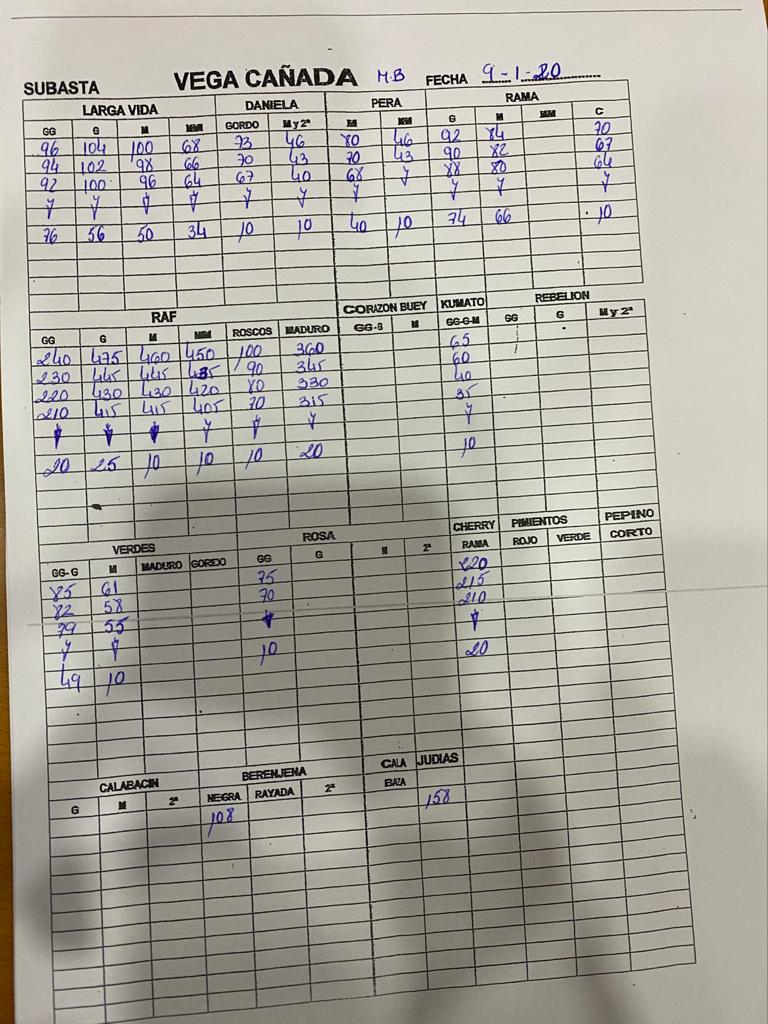 SUBASTA VEGA CAÑADA M.B FECHA 9-1-20
LARGA VIDA DANIELA PERA RAMA
GG G M MM GORDO M y 2ª M MM G M MM C
96 104 100 68 73 46 80 46 92 84 70
94 102 98 66 70 43 70 43 90 82 67
92 100 96 64 67 40 68 88 80 64
76 56 50 34 10 10 40 10 74 66 10
RAF CORAZON BUEY KUMATO REBELION
GG G M MM ROSCOS MADURO GG-G M GG-G-M GG G M y 2ª
240 475 460 450 100 360 65
230 445 445 435 90 345 60
220 430 430 420 80 330 40
210 415 415 405 70 315 35
20 25 10 10 10 20 10
VERDES ROSA CHERRY PIMIENTOS PEPINO
GG-G M MADURO GORDO GG G M 2ª RAMA ROJO VERDE CORTO
85 61 75 220
82 58 70 215
79 55 210
49 10 10 20
CALABACIN BERENJENA CALA JUDIAS
G M 2ª NEGRA RAYADA 2ª BAZA
108 158